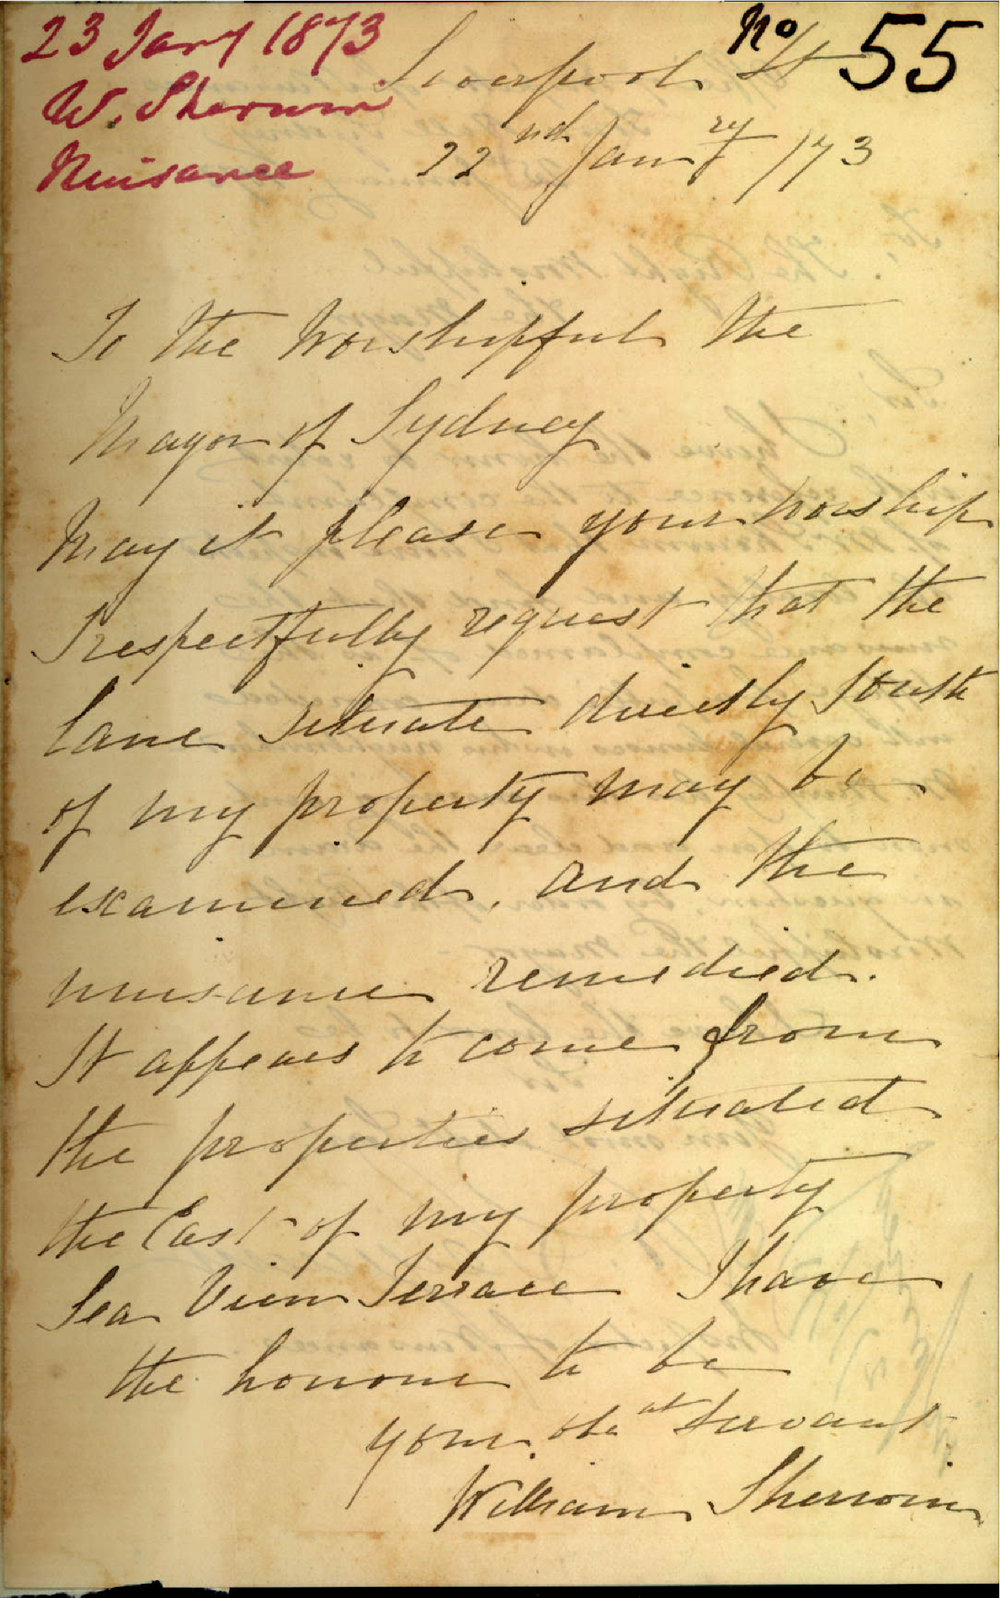 23 Jany 1873
W. Sherwin
Nuisance
No 55
Liverpool St
22nd Janry /73
To the Worshipful the
Mayor of Sydney
May it please your worship
I respectfully request that the
lane situate directly South
of my property may be
examined, and the
nuisance remedied.
It appears to come from
the properties situated
the East of my property
Sea View Terrace I have
the honour to be
your obt servant
William Sherwin